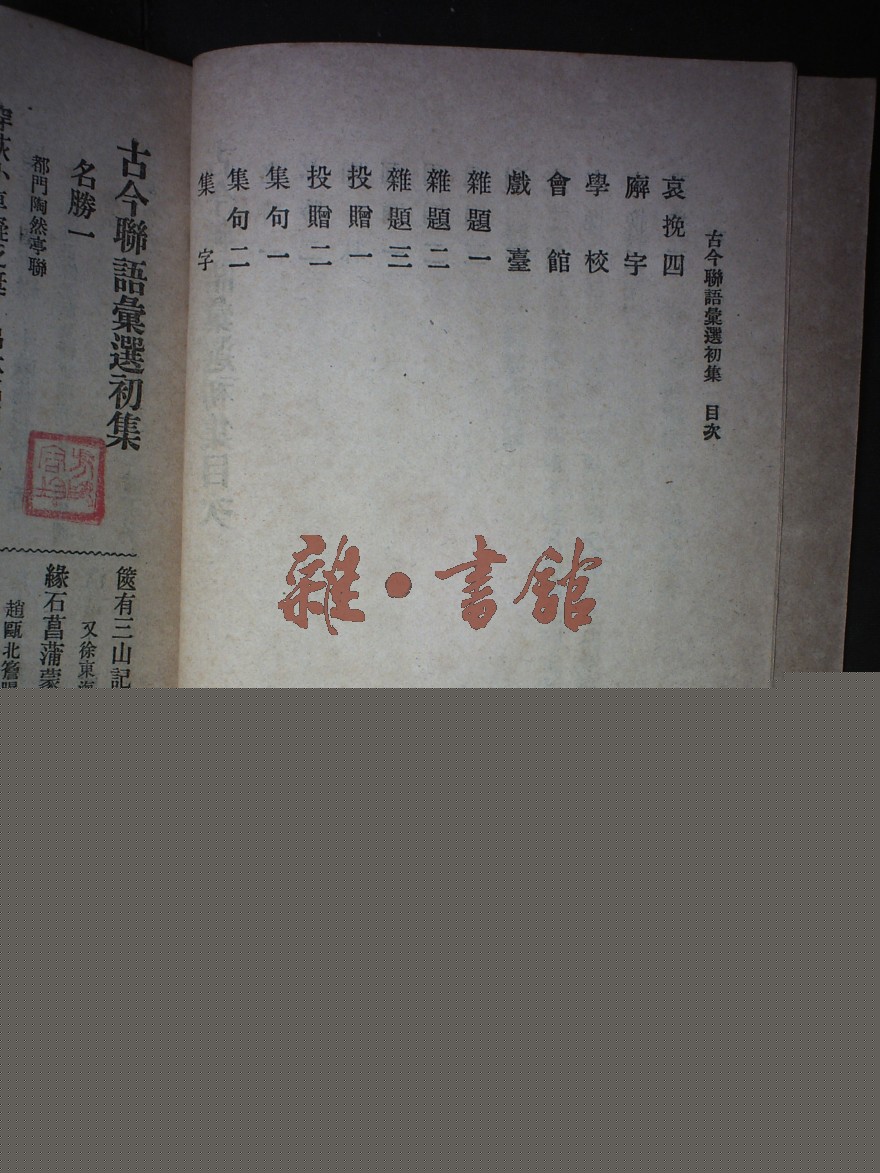 古今聯語彙選初集 目次
哀挽四
廨宇
學校
會館
戲臺
雜題一
雜題二
雜題三
投贈一
投贈二
集句一
集句二
集字
雜·書館
古今聯語彙選初集
名勝一
都門陶然亭聯
篋有三山記
又徐東海
緣石菖蒲蒙
趙甌北